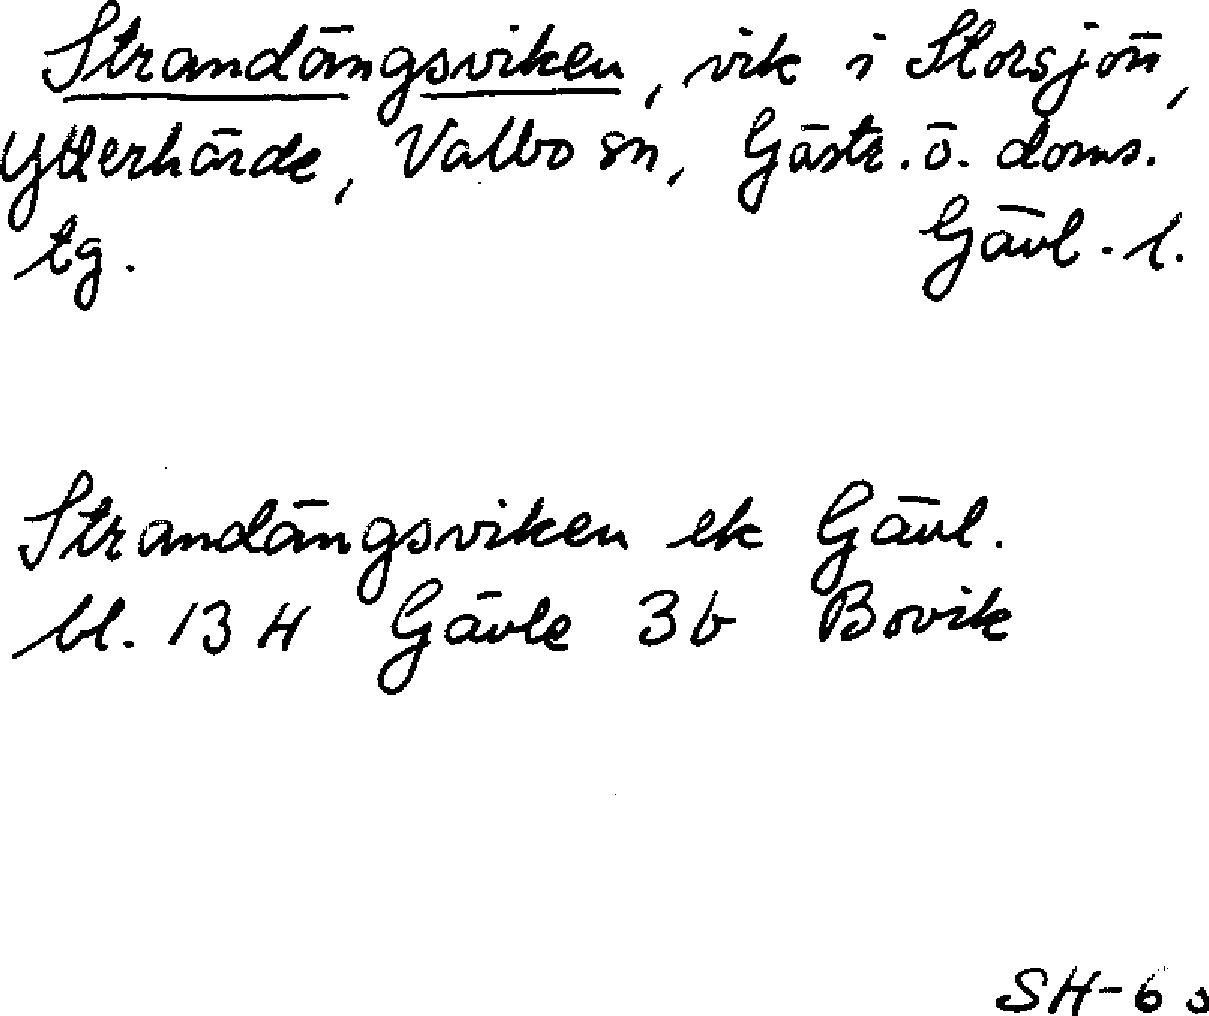 Strandängsviken, vik i Storsjön,
Ytterhärde, Valbo sn, Gästr. ö. doms.
tg. Gävl. l.
Strandängsviken ek Gävl.
bl. 13 H Gävle 3 b Bovik
SH-6